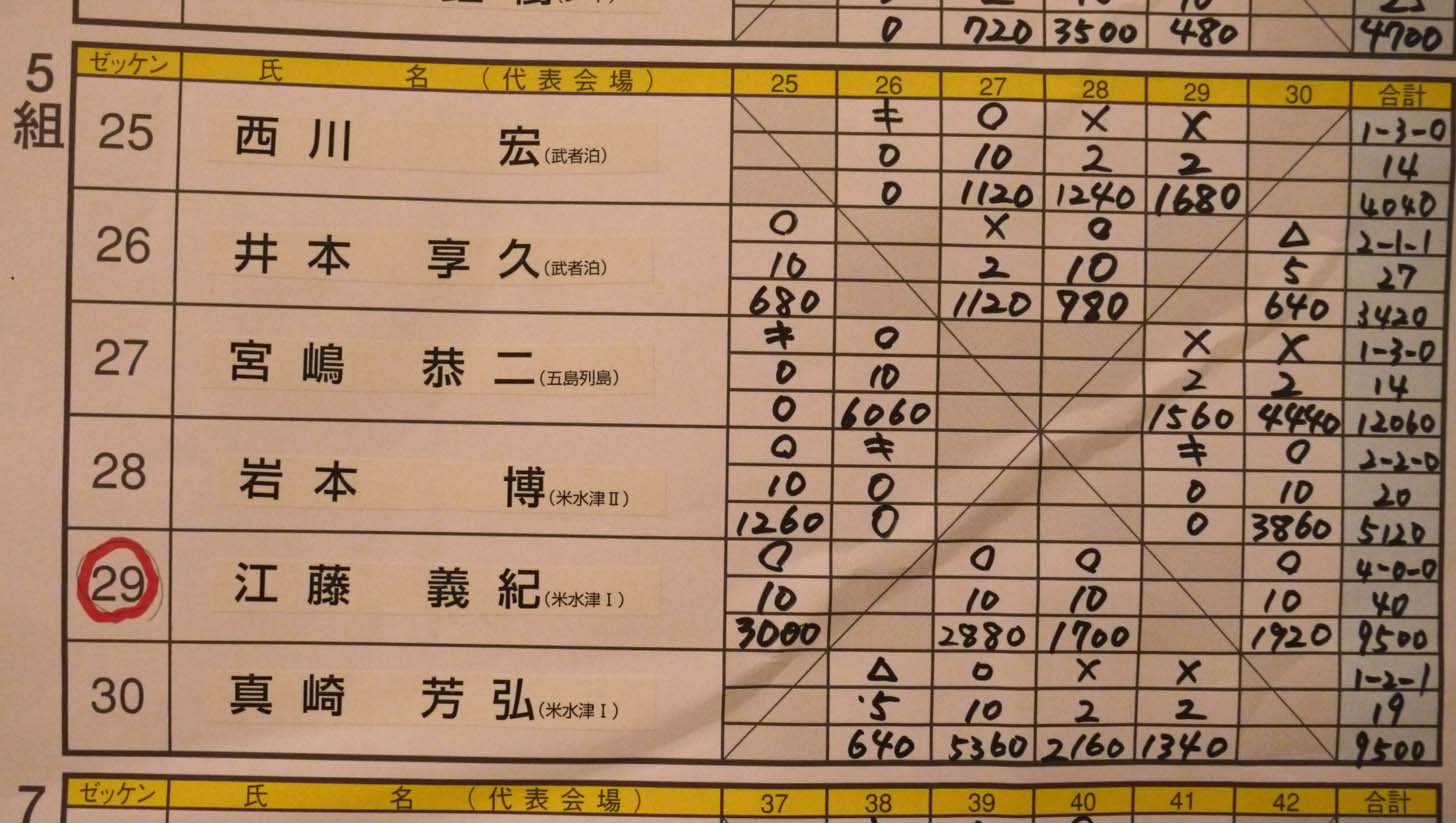 0 720 3500 480 4700
5組
ゼッケン 氏 名 (代表会場) 25 26 27 28 29 30 合計
キ O X X 1-3-0
25 西川 宏(武者泊) 0 10 2 2 14
0 1120 1240 1680 4040
O X O △ 2-1-1
26 井本 享久(武者泊) 10 2 10 5 27
680 1120 980 640 3420
キ O X X 1-3-0
27 宮嶋 恭二(五島列島) 0 10 2 2 14
0 6060 1560 4440 12060
O キ キ O 2-2-0
28 岩本 博(米水津Ⅱ) 10 0 0 10 20
1260 0 0 3860 5120
O O O O 4-0-0
29 江藤 義紀(米水津Ⅰ) 10 10 10 10 40
3000 2880 1700 1920 9500
△ O X X 1-2-1
30 真崎 芳弘(米水津Ⅰ) 5 10 2 2 19
640 5360 2160 1340 9500
7
ゼッケン 氏 名 (代表会場) 37 38 39 40 41 42 合計